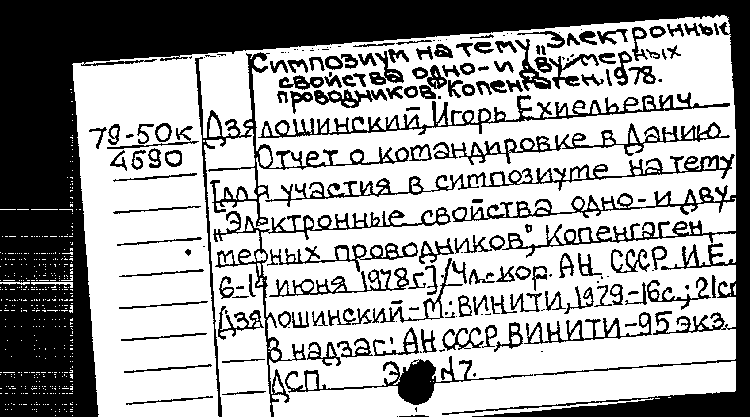 Симпозиум на тему „Электронные
свойства одно- и двумерных
проводников". Копенгаген. 1978.
79-50к
4690
Дзялошинский, Игорь Ехиельевич.
Отчет о командировке в Данию
[для участия в симпозиуме на тему
„Электронные свойства одно- и дву-
мерных проводников", Копенгаген,
6-14 июня 1978г.]/Чл.-кор. АН СССР И.Е.
Дзялошинский.-М.: ВИНИТИ, 1979.-16с.; 21см
В надзаг.: АН СССР, ВИНИТИ.-95 экз.
ДСП. №7.